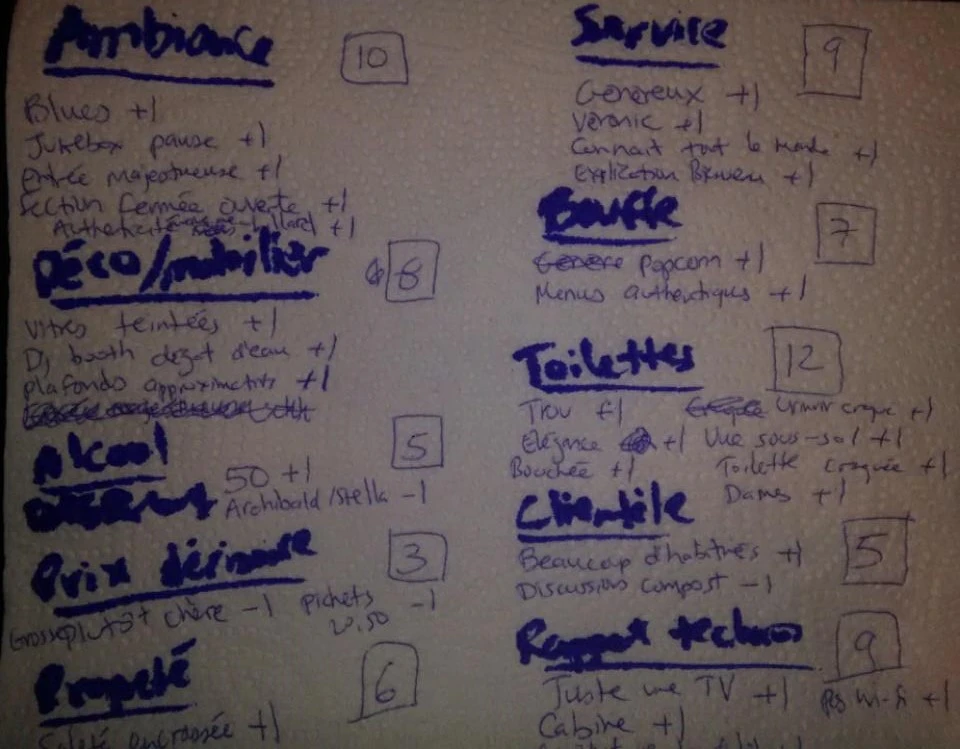 Ambiance 10
Blues +1
Jukebox pause +1
Entrée majestueuse +1
Section fermée ouverte +1
Authenticité +1
Déco/mobilier 8
Vitres teintées +1
Dj booth dégat d'eau +1
plafonds approximatifs +1
Alcool 5
50 +1
Archibald/Stella -1
Prix dérisoire 3
Grosse plutôt chère -1
Pichets 20.50 -1
Propreté 6
Saleté encrassée +1
Service 9
Généreux +1
Véronic +1
Connait tout le monde +1
Explication +1
Bouffe 7
popcorn +1
Menus authentiques +1
Toilettes 12
Trou +1 Urinoir craqué +1
Élégance +1 Vue sous-sol +1
Bouchée +1 Toilette craquée +1
Dames +1
Clientèle 5
Beaucoup d'habitués +1
Discussions compost -1
Rapport techno 9
Juste une TV +1 Pas Wi-Fi +1
Cabine +1